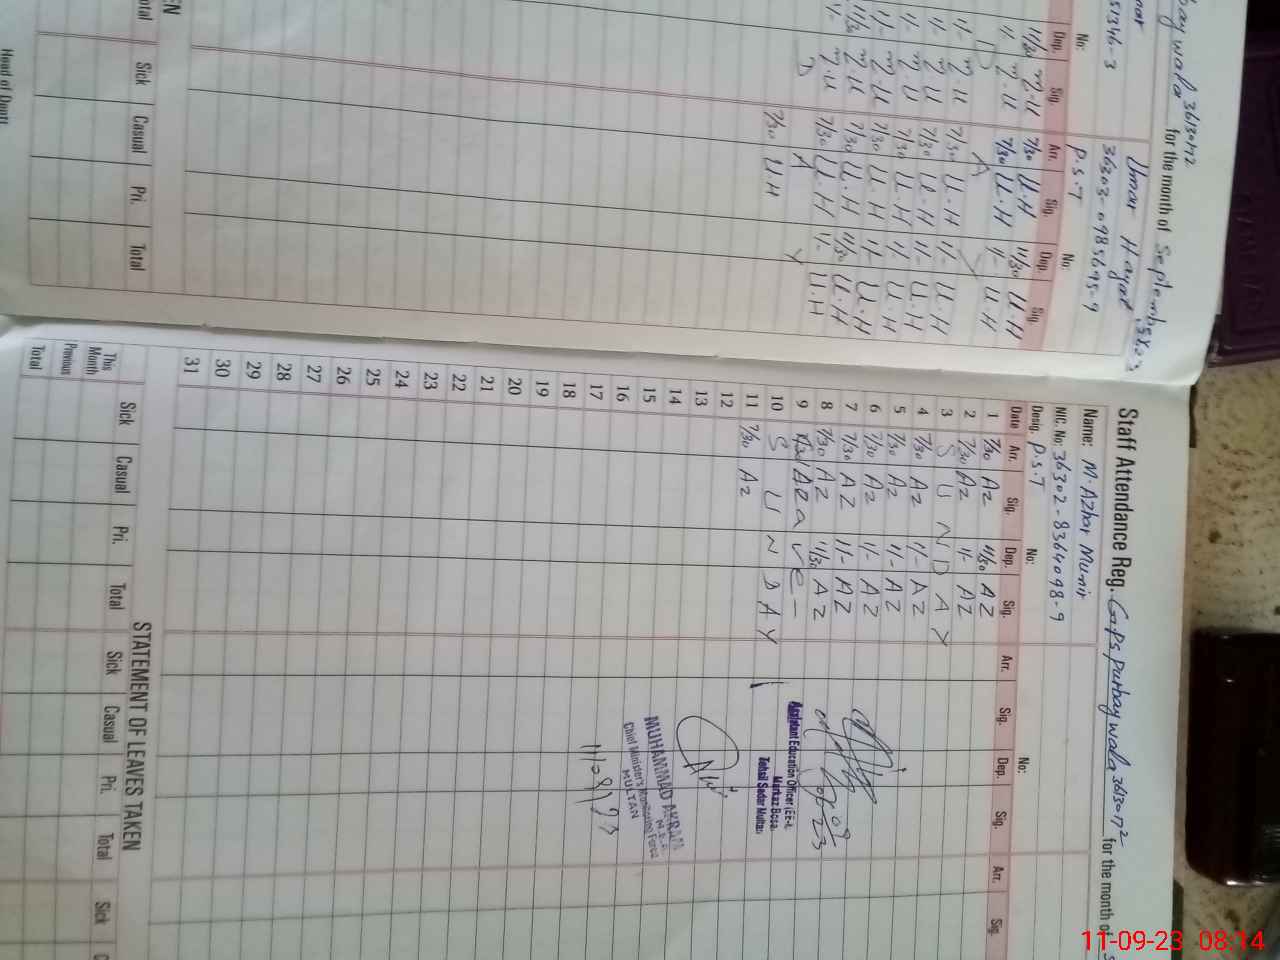 baywala 36130172 for the month of September
Umar Hayat
51346-3
36303-0985695-9
No:
P.S.T
No:
Dep. Sig. Arr. Sig. Dep. Sig.
11/30 M.U 7/30 U.H 11/30 U.H
11/- M.U 7/30 U.H 11/- U.H
D A Y
11/- M.U 7/30 U.H 11/- U.H
11/- M.U 7/30 U.H 11/- U.H
11/- M.U 7/30 U.H 11/- U.H
11/- M.U 7/30 U.H 11/- U.H
11/30 M.U 7/30 U.H 11/30 U.H
11/- M.U 7/30 U.H 11/- U.H
D A Y
7/30 U.H
EN
Total Sick Casual Pri. Total
Head of Deptt
Staff Attendance Reg. G.P.S, Purbay wala 36130172 for the month of S
Name: M. Azhar Munir
NIC. No: 36302-8364098-9
Desig. P.S.T No: No:
Date Arr. Sig. Dep. Sig. Arr. Sig. Dep. Sig. Arr. Sig.
1 7/30 AZ 11/30 AZ
2 7/30 AZ 11/- AZ
3 S U N D A Y
4 7/30 AZ 11/- AZ
5 7/30 AZ 11/- AZ
6 7/30 AZ 11/- AZ
7 7/30 AZ 11/- AZ
8 7/30 AZ 11/30 AZ
9
10 S U N D A Y
11 7/30 AZ
12
13
14
15
16
17
18
19
20
21
22
23
24
25
26
27
28
29
30
31
Assistant Education Officer (EE-I,
Markaz Bosan
Tehsil Sadar Multan
MUHAMMAD AKRAM
M.E.A
Chief Minister's Monitoring Force
MULTAN
11/09/23
STATEMENT OF LEAVES TAKEN
Sick Casual Pri. Total Sick Casual Pri. Total Sick C
This Month
Previous
Total
11-09-23 08:14